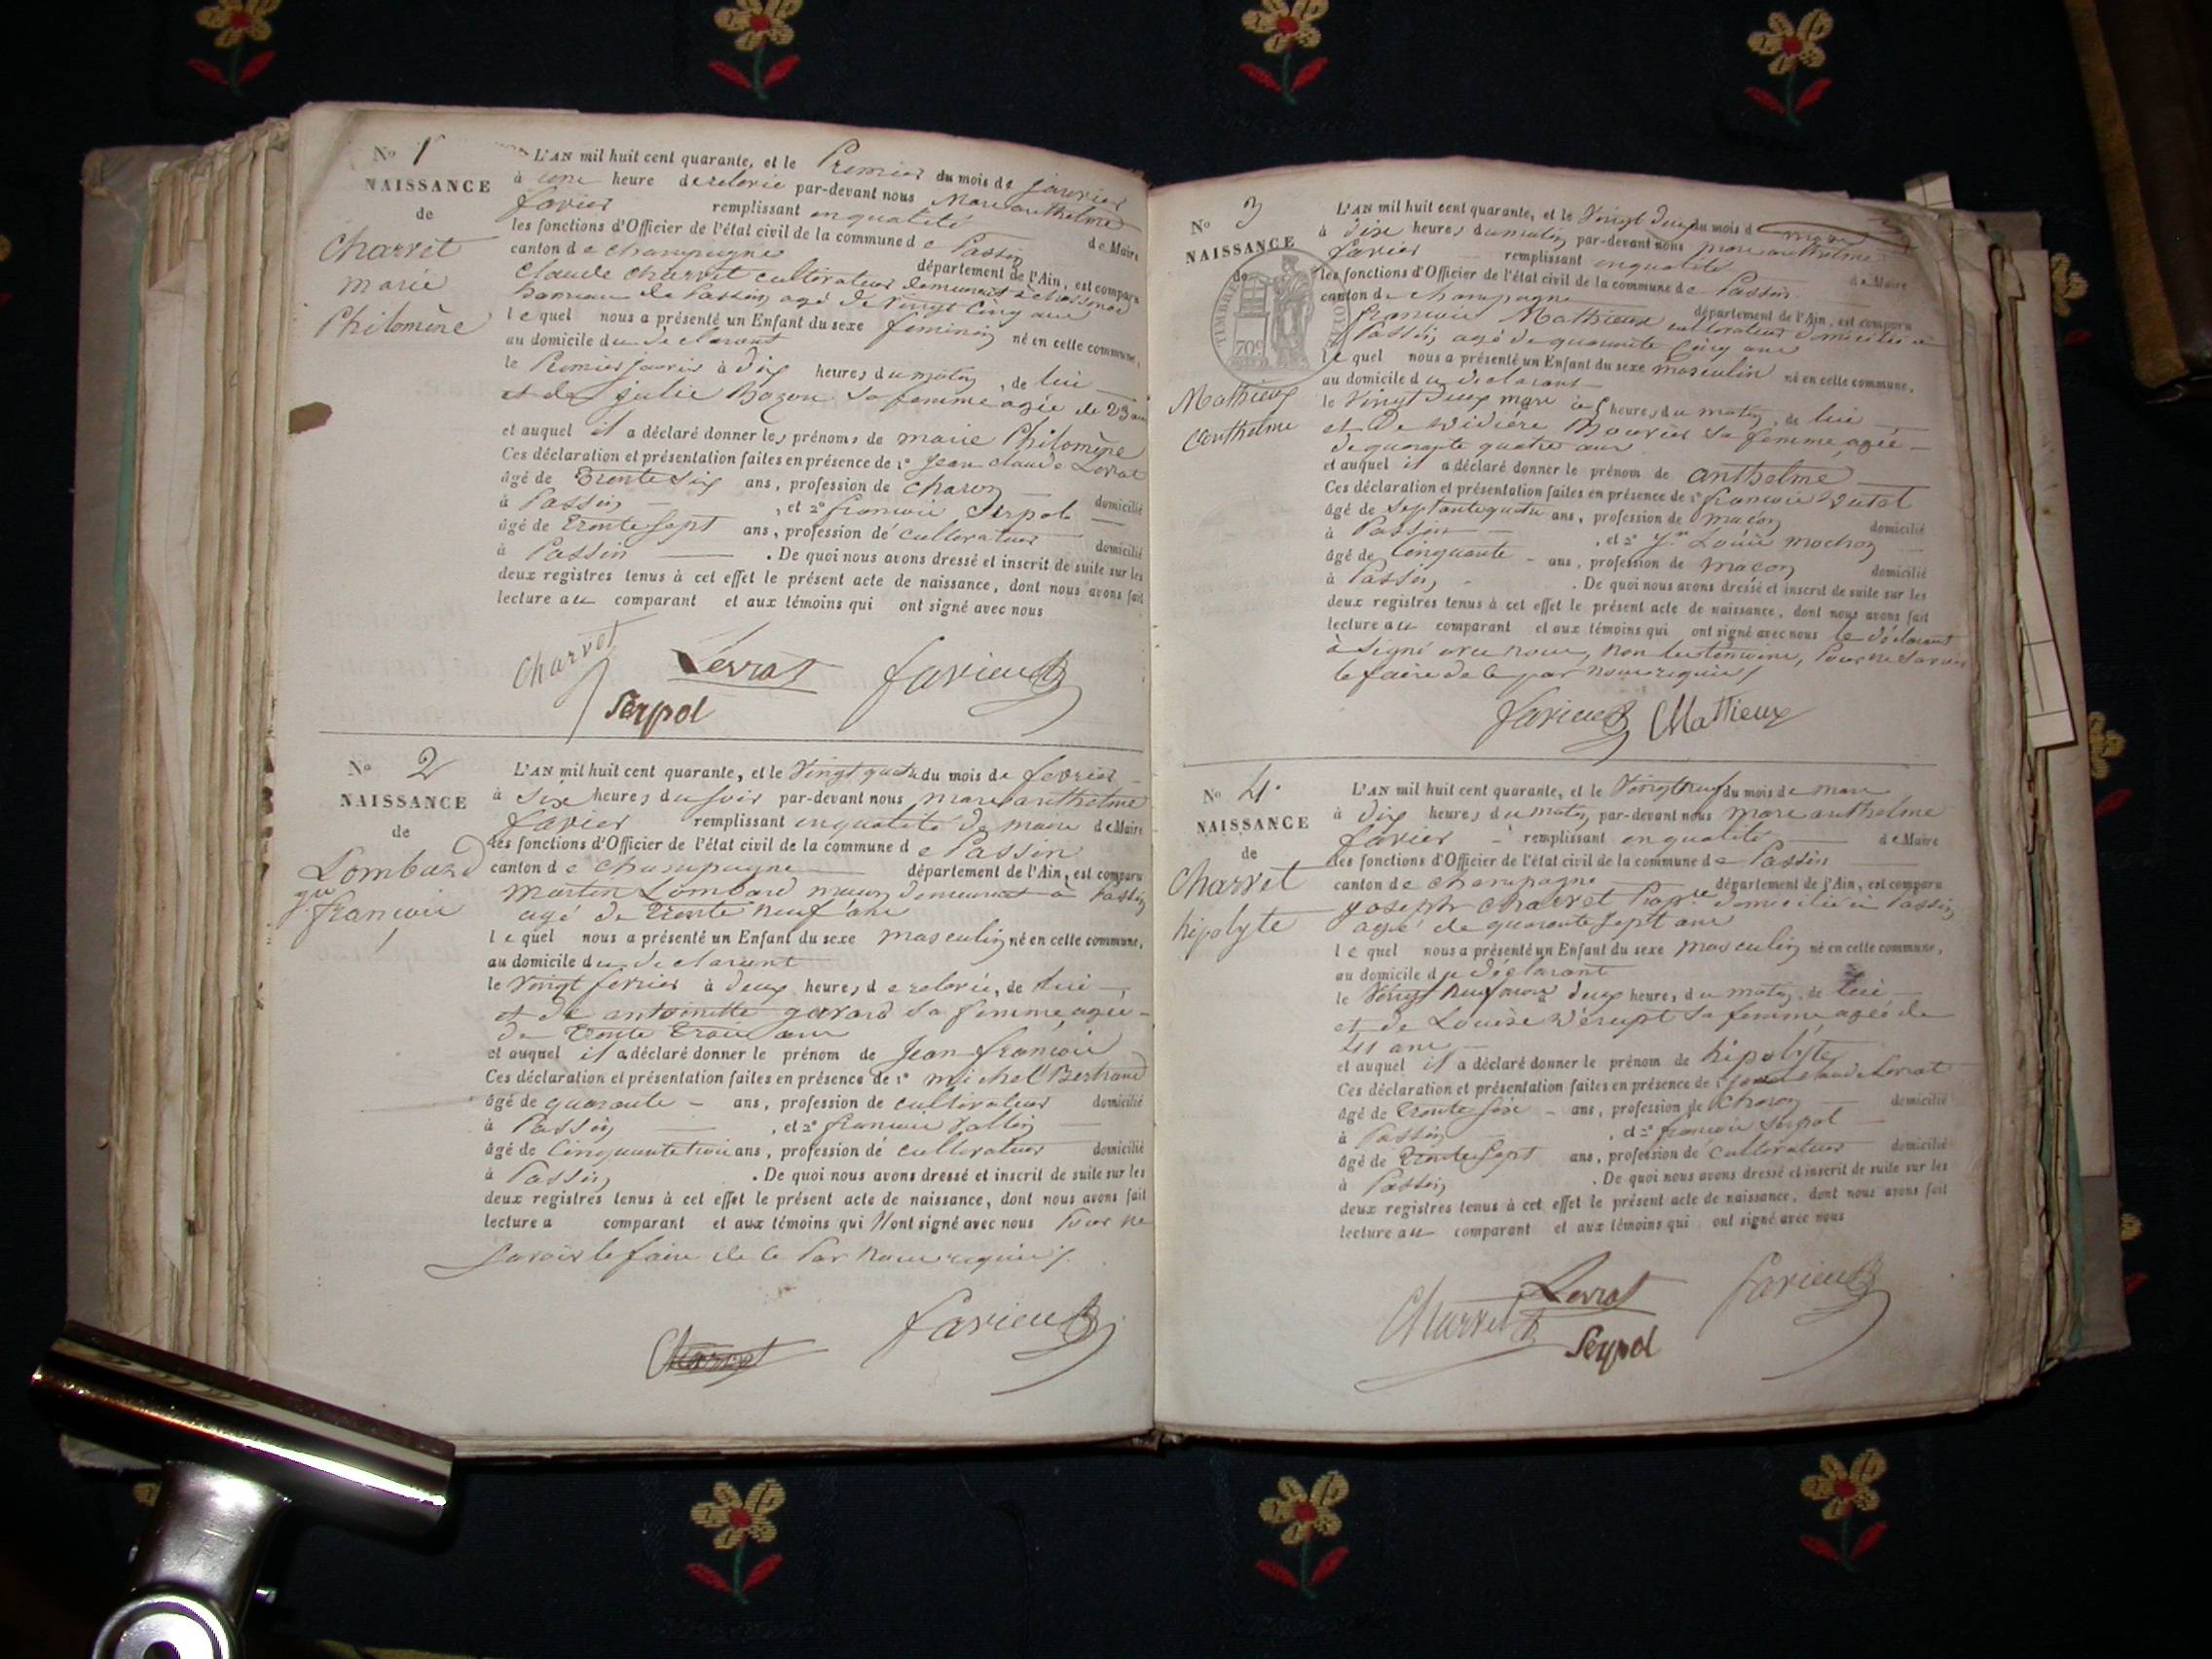 No 1
NAISSANCE
de
Charvet
marie
Philomène
L'AN mil huit cent quarante, et le Premier du mois de janvier
à une heure de relevée par-devant nous Marc anthelme
favier remplissant en qualité de Maire
les fonctions d'Officier de l'état civil de la commune de Passin
canton de Champagne département de l'Ain, est comparu
Claude Charvet cultivateur demeurant à
hameau de Passin agé de Vingt Cinq ans
lequel nous a présenté un Enfant du sexe feminin né en cette commune,
au domicile du declarant
le Premier janvier à dix heures du matin, de lui
et de julie Bozon sa femme agée de 23 ans
et auquel il a déclaré donner les prénoms de marie Philomène
Ces déclaration et présentation faites en présence de 1º Jean claude Levrat
âgé de Trente Six ans, profession de charon domicilié
à Passin, et 2º francois Serpol
âgé de Trente Sept ans, profession de cultivateur domicilié
à Passin. De quoi nous avons dressé et inscrit de suite sur les
deux registres tenus à cet effet le présent acte de naissance, dont nous avons fait
lecture au comparant et aux témoins qui ont signé avec nous
Charvet Levrat favier
Serpol
No 2
NAISSANCE
de
Lombard
jn
françois
L'AN mil huit cent quarante, et le Vingt quatre du mois de fevrier
à Six heures du soir par-devant nous marc anthelme
favier remplissant en qualité de maire de Maire
les fonctions d'Officier de l'état civil de la commune de Passin
canton de Champagne département de l'Ain, est comparu
Martin Lombard maçon demeurant à Passin
agé de Trente neuf ans
lequel nous a présenté un Enfant du sexe masculin né en cette commune,
au domicile du declarant
le Vingt fevrier à deux heures de relevée, de lui
et de antoinette gavard sa femme, agée
de Trente Trois ans
et auquel il a déclaré donner le prénom de Jean françois
Ces déclaration et présentation faites en présence de 1º michel Bertrand
âgé de quarante ans, profession de cultivateur domicilié
à Passin, et 2º francois Vallin
âgé de Cinquante trois ans, profession de cultivateur domicilié
à Passin. De quoi nous avons dressé et inscrit de suite sur les
deux registres tenus à cet effet le présent acte de naissance, dont nous avons fait
lecture a comparant et aux témoins qui N'ont signé avec nous Pour ne
Savoir le faire de ce Par nous requis
Charvet favier
No 3
NAISSANCE
de
TIMBRE ROYAL
70c
Mathieux
anthelme
L'AN mil huit cent quarante, et le Vingt deux du mois de mars
à dix heures du matin par-devant nous marc anthelme
favier remplissant en qualité de Maire
les fonctions d'Officier de l'état civil de la commune de Passin
canton de champagne département de l'Ain, est comparu
francois Mathieux cultivateur domicilié à
Passin agé de quarante Cinq ans
lequel nous a présenté un Enfant du sexe masculin né en cette commune,
au domicile du declarant
le Vingt deux mars à 5 heures du matin, de lui
et De Bouvier sa femme, agée
de quarante quatre ans
et auquel il a déclaré donner le prénom de anthelme
Ces déclaration et présentation faites en présence de 1º francois
âgé de Septante quatre ans, profession de maçon domicilié
à Passin, et 2º jn Louis mochon
âgé de Cinquante ans, profession de maçon domicilié
à Passin. De quoi nous avons dressé et inscrit de suite sur les
deux registres tenus à cet effet le présent acte de naissance, dont nous avons fait
lecture au comparant et aux témoins qui ont signé avec nous le déclarant
à signé avec nous, non les témoins, Pour ne Savoir
le faire de ce par nous requis
favier Mattieux
No 4.
NAISSANCE
de
Charvet
hipolyte
L'AN mil huit cent quarante, et le Vingt neuf du mois de mars
à dix heures du matin par-devant nous marc anthelme
favier remplissant en qualité de Maire
les fonctions d'Officier de l'état civil de la commune de Passin
canton de champagne département de l'Ain, est comparu
joseph charvet Propre domicilié à Passin
agé de quarante Sept ans
lequel nous a présenté un Enfant du sexe masculin né en cette commune,
au domicile du déclarant
le Vingt neuf mars à deux heures du matin, de lui
et de Louise sa femme, agée de
41 ans
et auquel il a déclaré donner le prénom de hipolyte
Ces déclaration et présentation faites en présence de 1º jean claude Levrat
âgé de Trente Six ans, profession de Charon domicilié
à Passin, et 2º francois Serpol
âgé de Trente Sept ans, profession de cultivateur domicilié
à Passin. De quoi nous avons dressé et inscrit de suite sur les
deux registres tenus à cet effet le présent acte de naissance, dont nous avons fait
lecture au comparant et aux témoins qui ont signé avec nous
Charvet Levrat favier
Serpol